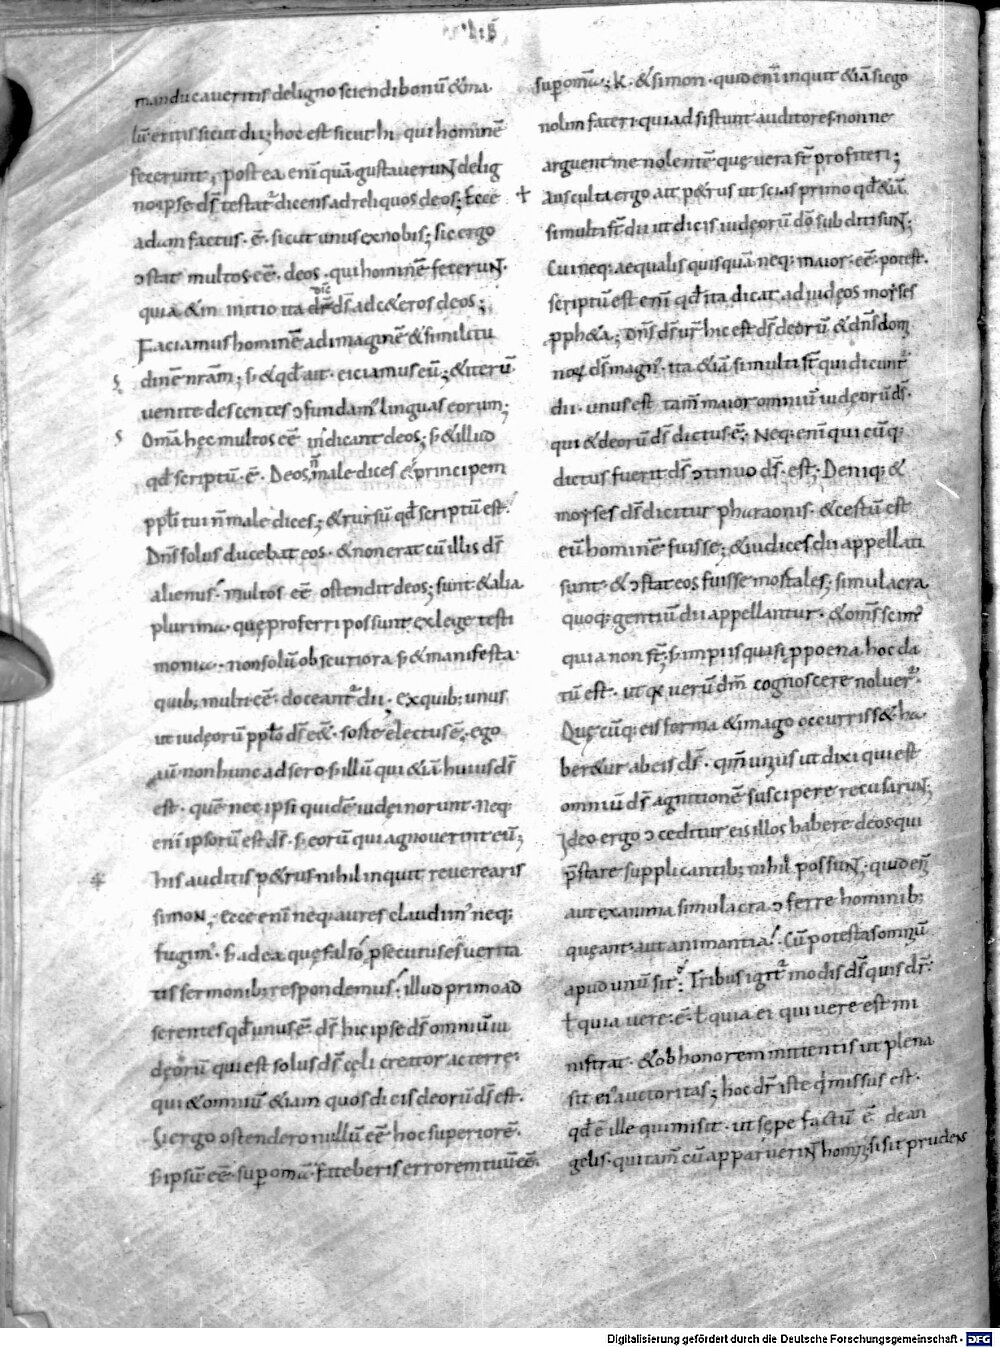 manducaveritis de ligno sciendi bonū & ma
lū eritis sicut dii; hoc est sicut hi qui hominē
fecerunt; postea enī quā gustaverunt de lig
no ipse ds̄ testat̄ dicens ad reliquos deos; Ecce
adam factus ē sicut unus ex nobis; sic ergo
ↄstat multos eē deos qui hominē fecerunt.
quia & in initio ita dr̄ ds̄ ad c&eros deos;
Faciamus hominē ad imaginē & similitu
dinē nr̄am; s; & qđ ait eiciamus eū; & iterū
venite descentes ↄfundam' linguas eorum;
Om̄a hęc multos eē indicant deos; s; & illud
qđ scriptū ē. Deos n̄ male dices & principem
pp̄li tui n̄ male dices; & rursū qđ scriptū est.
Dn̄s solus ducebat eos & non erat cū illis ds̄
alienus. multos eē ostendit deos; sunt & alia
plurima quę proferri possunt ex lege testi
monia non solū obscuriora s; & manifesta
quib; multi eē doceant̄ dii. ex quib; unus
ut iudęorū pp̄lo ds̄ ē&. sorte electus ē; ego
aū non hunc adsero s; illū qui &iā huius ds̄
est. quē nec ipsi quidē iudęi norunt. Neq;
enī ipsorū est ds̄. s; eorū qui agnoverint eū;
His auditis p&rus nihil inquit verearis
simon; ecce enī neq; aures claudim' neq;
fugim'. s; ad ea quę falso p̄secutus es verita
tis sermonib; respondemus. illud primo ad
serentes qđ unus ē ds̄ hic ipse ds̄ omniū iu
dęorū qui est solus ds̄ cęli creator ac terrę.
qui & omniū &iam quos dicis deorū ds̄ est.
Si ergo ostendero nullū eē hoc superiorē.
s; ipsū eē sup om̄a. fateberis errorem tuū eē
sup om̄a; K. & simon quid enī inquit &iā si ego
nolim fateri. qui adsistunt auditores nonne
arguent me nolentē quę vera st̄ profiteri;
Ausculta ergo ait p&rus ut scias primo qđ &iā
si multi st̄ dii ut dicis iudęorū dō subditi sunt;
Cui neq; aequalis quisquā neq; maior eē potest.
scriptū est enī qđ ita dicat ad iudęos moyses
pph&a; Dn̄s ds̄ ur̄ hic est ds̄ deorū & dn̄s dom̄
noꝝ ds̄ magn'. ita &iā si multi st̄ qui dicunt̄
dii. unus est tam̄ maior omniū iudęorū ds̄.
qui & deorū ds̄ dictus ē; Neq; enī quicūq;
dictus fuerit ds̄ ↄtinuo ds̄ est; Deniq; &
moyses ds̄ dicitur pharaonis & certū est
eū hominē fuisse; & iudices dii appellati
sunt & ↄstat eos fuisse mortales; simulacra
quoq; gentiū dii appellantur & om̄s scim'
quia non st̄; s; impiis quasi p poena hoc da
tū est. ut quia verū dm̄ cognoscere noluer̄.
Quęcūq; eis forma & imago occurriss& ha
ber&ur ab eis ds̄. qm̄ unius ut dixi qui est
omniū ds̄ agnitionē suscipere recusarunt;
Ideo ergo ↄceditur eis illos habere deos qui
p̄stare supplicantib; nihil possunt. quid en̄
aut exanima simulacra ↄferre hominib;
queant aut animantia. Cū potestas omniū
apud unū sit; Tribus igit̄ modis ds̄ quis dr̄.
ł quia vere ē. ł quia ei qui vere est mi
nistrat & ob honorem mittentis ut plena
sit ei' auctoritas; hoc dr̄ iste qui missus est.
qđ ē ille qui misit. ut sępe factū ē de an
gelis qui tam̄ cū apparuerint homini si sit prudens